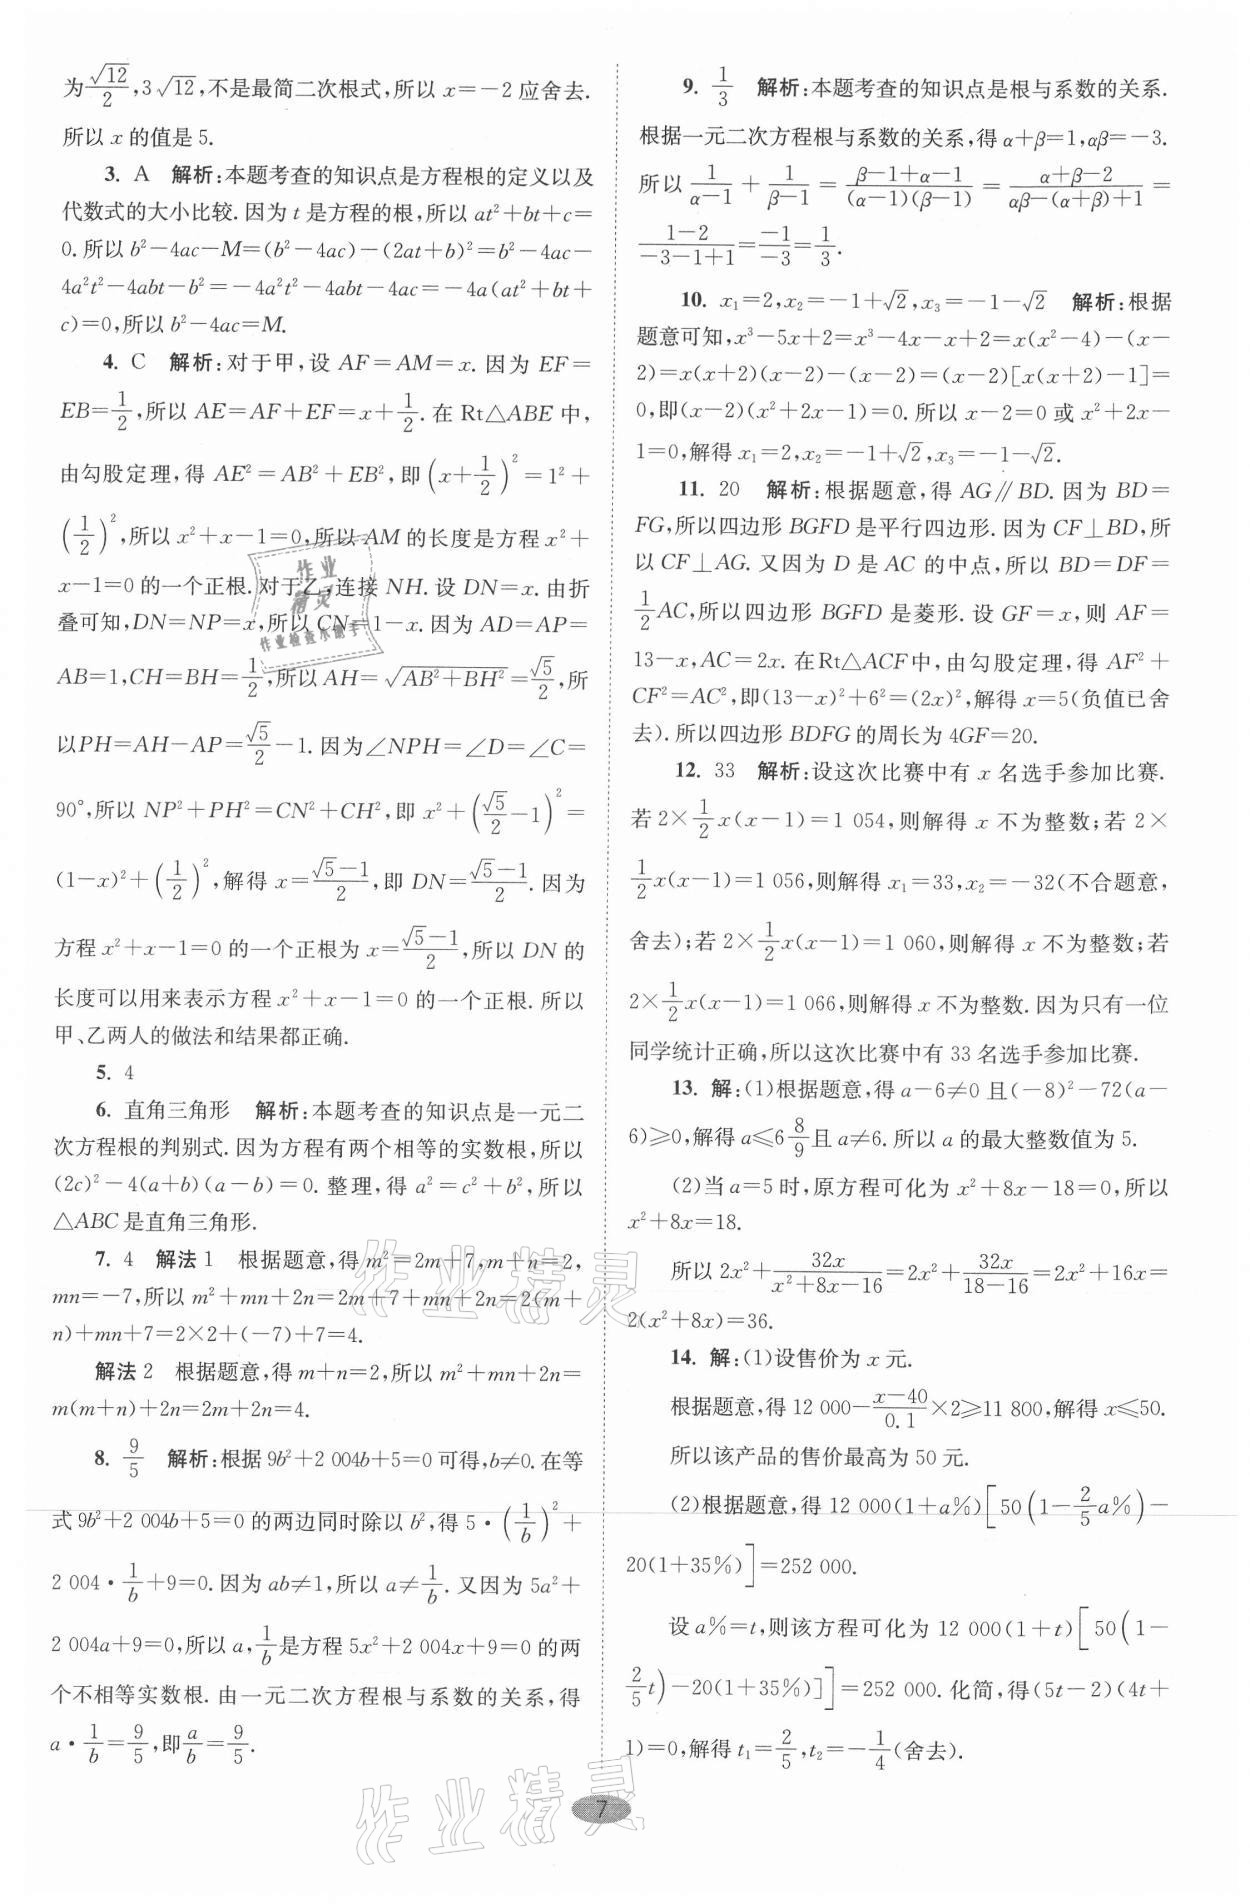 为√12/2,3√12,不是最简二次根式,所以 x=-2 应舍去.
所以 x 的值是 5.
3. A 解析:本题考查的知识点是方程根的定义以及
代数式的大小比较. 因为 t 是方程的根,所以 at²+bt+c=
0. 所以 b²-4ac-M=(b²-4ac)-(2at+b)²=b²-4ac-
4a²t²-4abt-b²=-4a²t²-4abt-4ac=-4a(at²+bt+
c)=0,所以 b²-4ac=M.
4. C 解析:对于甲,设 AF=AM=x. 因为 EF=
EB=1/2,所以 AE=AF+EF=x+1/2. 在 Rt△ABE 中,
由勾股定理,得 AE²=AB²+EB²,即(x+1/2)²=1²+
(1/2)²,所以 x²+x-1=0,所以 AM 的长度是方程 x²+
x-1=0 的一个正根. 对于乙,连接 NH. 设 DN=x. 由折
叠可知,DN=NP=x,所以 CN=1-x. 因为 AD=AP=
AB=1,CH=BH=1/2,所以 AH=√(AB²+BH²)=√5/2,所
以 PH=AH-AP=√5/2-1. 因为∠NPH=∠D=∠C=
90°,所以 NP²+PH²=CN²+CH²,即 x²+(√5/2-1)²=
(1-x)²+(1/2)²,解得 x=(√5-1)/2,即 DN=(√5-1)/2. 因为
方程 x²+x-1=0 的一个正根为 x=(√5-1)/2,所以 DN 的
长度可以用来表示方程 x²+x-1=0 的一个正根. 所以
甲、乙两人的做法和结果都正确.
5. 4
6. 直角三角形 解析:本题考查的知识点是一元二
次方程根的判别式. 因为方程有两个相等的实数根,所以
(2c)²-4(a+b)(a-b)=0. 整理,得 a²=c²+b²,所以
△ABC 是直角三角形.
7. 4 解法 1 根据题意,得 m²=2m+7,m+n=2,
mn=-7,所以 m²+mn+2n=2m+7+mn+2n=2(m+
n)+mn+7=2×2+(-7)+7=4.
解法 2 根据题意,得 m+n=2,所以 m²+mn+2n=
m(m+n)+2n=2m+2n=4.
8. 9/5 解析:根据 9b²+2 004b+5=0 可得,b≠0. 在等
式 9b²+2 004b+5=0 的两边同时除以 b²,得 5·(1/b)²+
2 004·1/b+9=0. 因为 ab≠1,所以 a≠1/b. 又因为 5a²+
2 004a+9=0,所以 a,1/b是方程 5x²+2 004x+9=0 的两
个不相等实数根. 由一元二次方程根与系数的关系,得
a·1/b=9/5,即a/b=9/5.
9. 1/3 解析:本题考查的知识点是根与系数的关系.
根据一元二次方程根与系数的关系,得 α+β=1,αβ=-3.
所以 1/(α-1)+1/(β-1)=(β-1+α-1)/((α-1)(β-1))=(α+β-2)/(αβ-(α+β)+1)=
(1-2)/(-3-1+1)=(-1)/(-3)=1/3.
10. x₁=2,x₂=-1+√2,x₃=-1-√2 解析:根据
题意可知,x³-5x+2=x³-4x-x+2=x(x²-4)-(x-
2)=x(x+2)(x-2)-(x-2)=(x-2)[x(x+2)-1]=
0,即(x-2)(x²+2x-1)=0. 所以 x-2=0 或 x²+2x-
1=0,解得 x₁=2,x₂=-1+√2,x₃=-1-√2.
11. 20 解析:根据题意,得 AG∥BD. 因为 BD=
FG,所以四边形 BGFD 是平行四边形. 因为 CF⊥BD,所
以 CF⊥AG. 又因为 D 是 AC 的中点,所以 BD=DF=
1/2AC,所以四边形 BGFD 是菱形. 设 GF=x,则 AF=
13-x,AC=2x. 在Rt△ACF中,由勾股定理,得 AF²+
CF²=AC²,即(13-x)²+6²=(2x)²,解得 x=5(负值已舍
去). 所以四边形 BDFG 的周长为 4GF=20.
12. 33 解析:设这次比赛中有 x 名选手参加比赛.
若 2×1/2x(x-1)=1 054,则解得 x 不为整数;若 2×
1/2x(x-1)=1 056,则解得 x₁=33,x₂=-32(不合题意,
舍去);若 2×1/2x(x-1)=1 060,则解得 x 不为整数;若
2×1/2x(x-1)=1 066,则解得 x 不为整数. 因为只有一位
同学统计正确,所以这次比赛中有 33 名选手参加比赛.
13. 解:(1)根据题意,得 a-6≠0 且(-8)²-72(a-
6)≥0,解得 a≤6 8/9且 a≠6. 所以 a 的最大整数值为 5.
(2)当 a=5 时,原方程可化为 x²+8x-18=0,所以
x²+8x=18.
所以 2x²+32x/(x²+8x-16)=2x²+32x/(18-16)=2x²+16x=
2(x²+8x)=36.
14. 解:(1)设售价为 x 元.
根据题意,得 12 000-(x-40)/0.1×2≥11 800,解得 x≤50.
所以该产品的售价最高为 50 元.
(2)根据题意,得 12 000(1+a%)[50(1-2/5a%)-
20(1+35%)]=252 000.
设 a%=t,则该方程可化为 12 000(1+t)[50(1-
2/5t)-20(1+35%)]]=252 000. 化简,得(5t-2)(4t+
1)=0,解得 t₁=2/5,t₂=-1/4(舍去).
7
作业
精灵
作业检查小助手
作业精灵
作业精灵